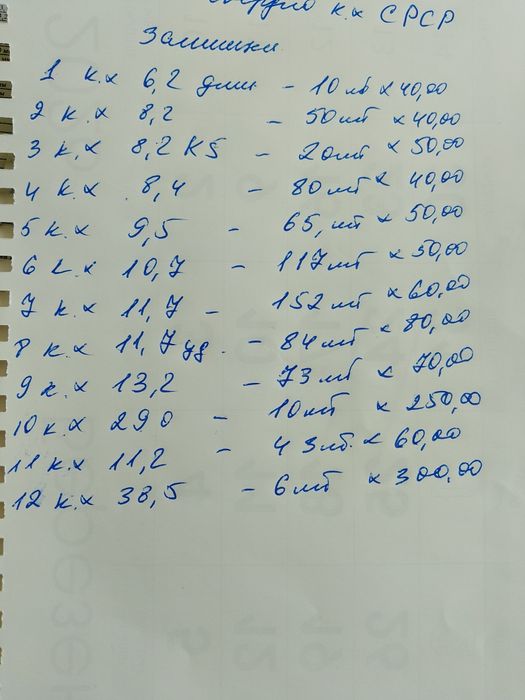 к.х СРСР
Залишки
1 к.х 6,2 длин - 10 шт х 40,00
2 к.х 8,2 - 50 шт х 40,00
3 к.х 8,2 КБ - 20 шт х 50,00
4 к.х 8,4 - 80 шт х 40,00
5 к.х 9,5 - 65, шт х 50,00
6 к.х 10,7 - 117 шт х 50,00
7 к.х 11,7 - 152 шт х 60,00
8 к.х 11,7 уд. - 84 шт х 80,00
9 к.х 13,2 - 73 шт х 70,00
10 к.х 290 - 10 шт х 250,00
11 к.х 11,2 - 43 шт. х 60,00
12 к.х 38,5 - 6 шт х 300,00